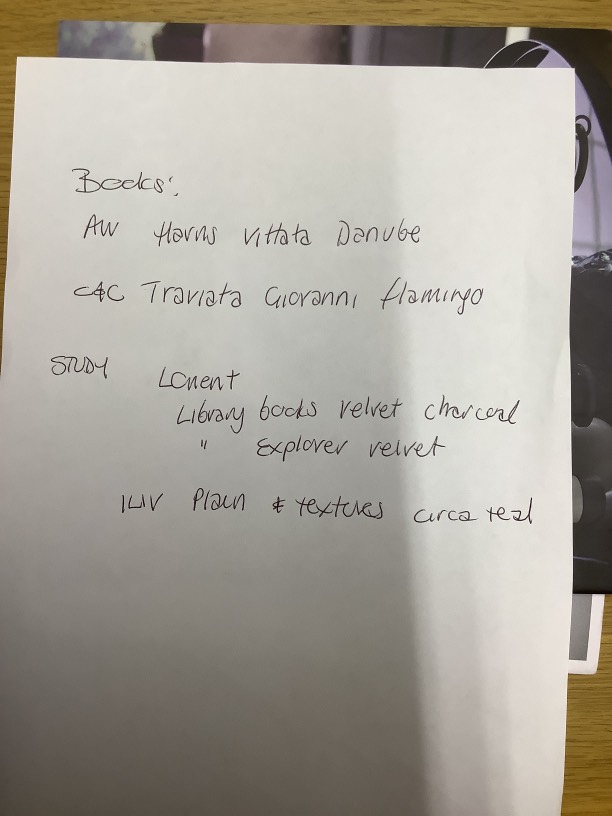 Books:
AW Harris Vittata Danube
C&C Traviata Giovanni flamingo
STUDY
Library books velvet charcoal
" Explorer velvet
ILIV Plain & textures circa teal